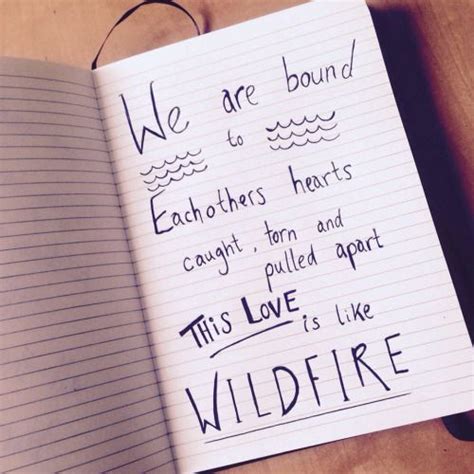 We are bound
to
Eachothers hearts
caught, torn and
pulled apart
THIS LOVE is like
WILDFIRE